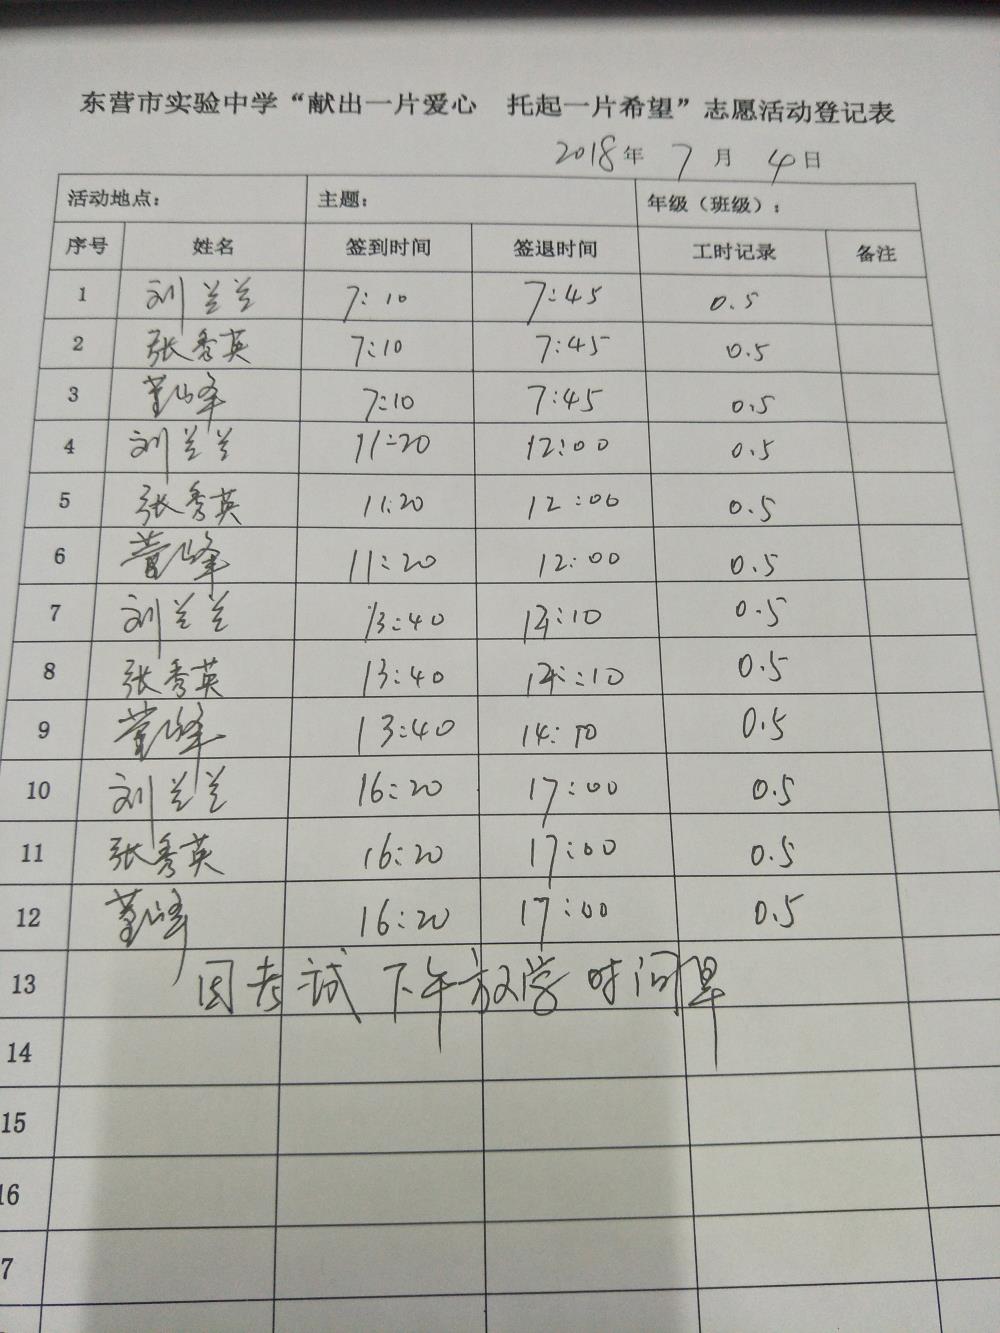 东营市实验中学“献出一片爱心 托起一片希望”志愿活动登记表
2018年 7月 4日
活动地点： 主题： 年级（班级）：
序号 姓名 签到时间 签退时间 工时记录 备注
1 刘兰兰 7:10 7:45 0.5
2 张秀英 7:10 7:45 0.5
3 7:10 7:45 0.5
4 刘兰兰 11:20 12:00 0.5
5 张秀英 11:20 12:00 0.5
6 11:20 12:00 0.5
7 刘兰兰 13:40 0.5
8 张秀英 13:40 14:10 0.5
9 13:40 14:10 0.5
10 刘兰兰 16:20 17:00 0.5
11 张秀英 16:20 17:00 0.5
12 16:20 17:00 0.5
13 因考试下午放学时间早
14
15
16
7